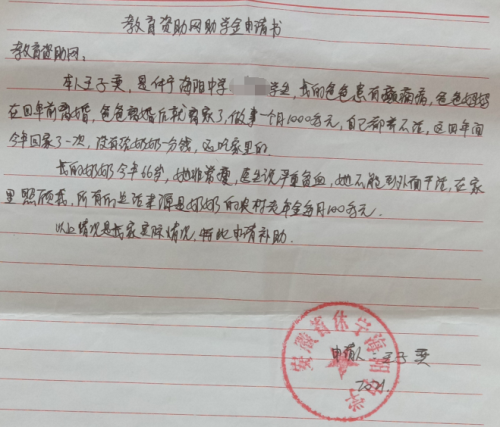 教育资助网助学金申请书
教育资助网:
本人王子英,是休宁海阳中学 学生,我的爸爸患有癫痫病,爸爸妈妈
在四年前离婚,爸爸离婚后就离家了,做事一个月1000多元,自己都养不活,这四年间
今年回家了一次,没有给奶奶一分钱,这吃家里的.
我的奶奶今年66岁,她非常瘦,医生说严重贫血,她不能到外面干活,在家
里照顾我,所有的生活来源是奶奶的农村老年金每月100多元.
以上情况是我家实际情况,特此申请补助.
申请人:王子英
安徽省休宁海阳中学